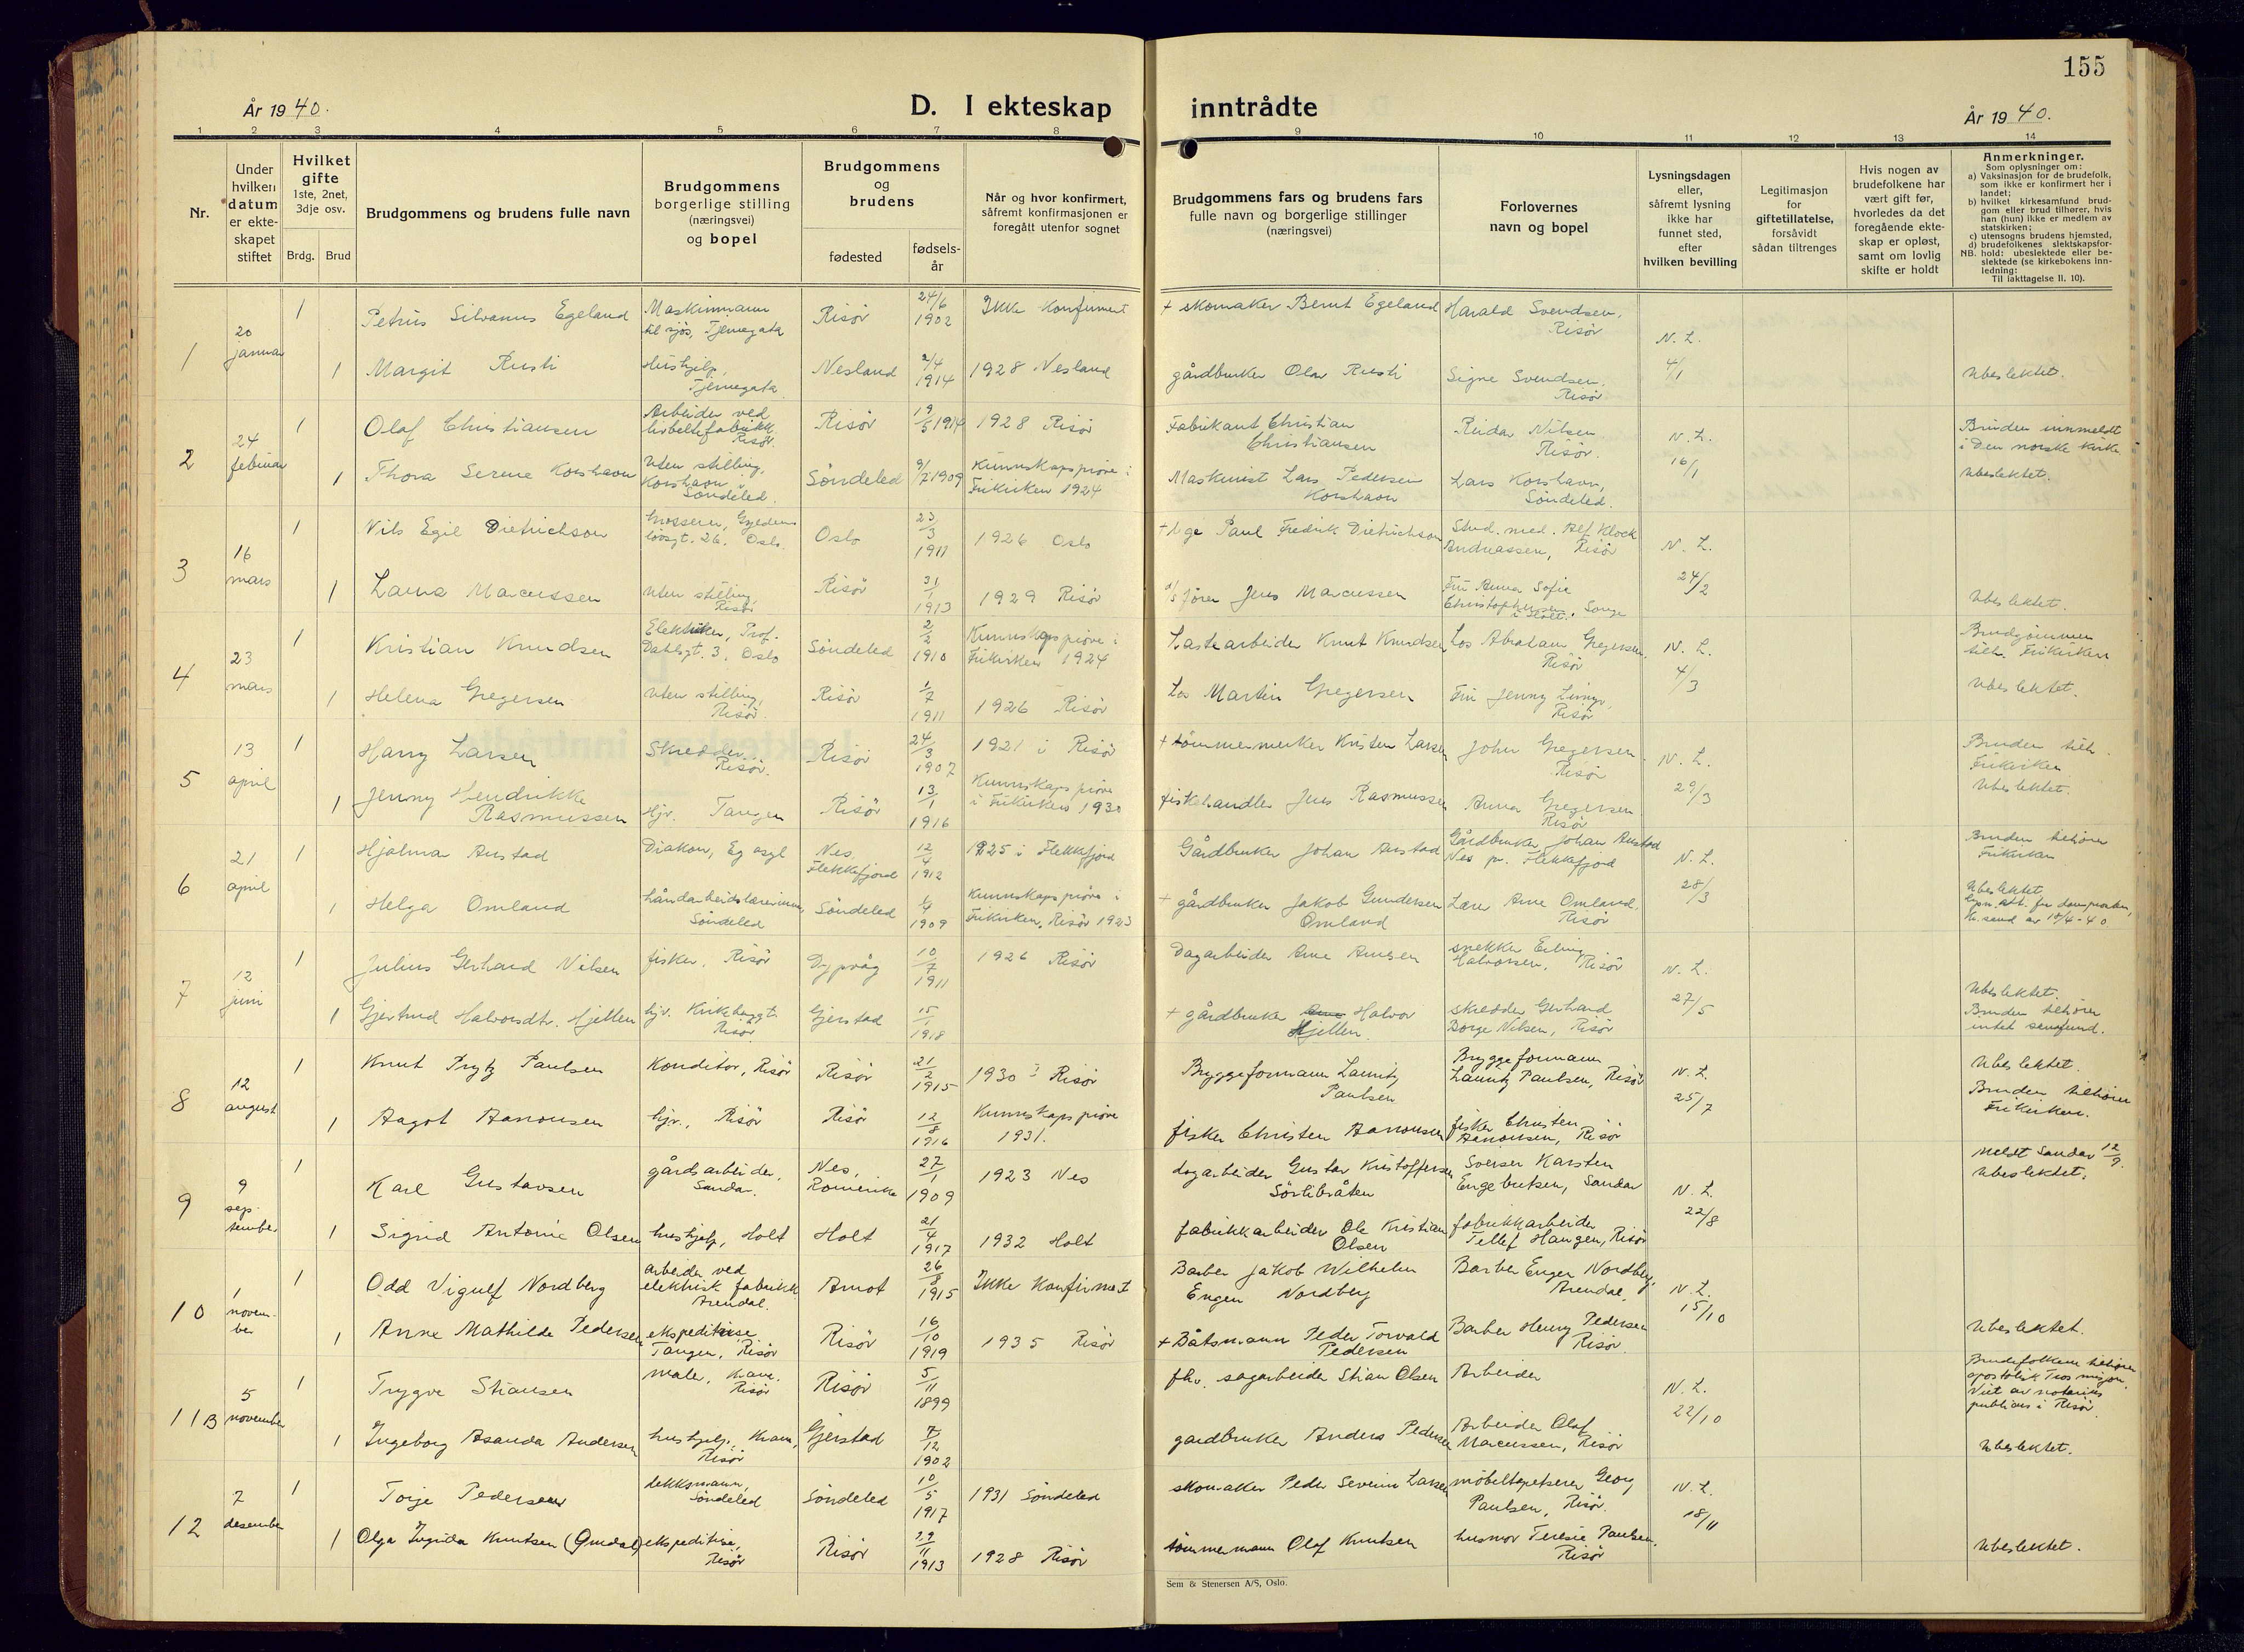 155
År 1940.
D. I ekteskap inntrådte
År 1940.
1 2 3 4 5 6 7 8 9 10 11 12 13 14
Nr.
Under
hvilken
datum
er ekte-
skapet
stiftet
Hvilket
gifte
1ste, 2net,
3dje osv.
Brdg. Brud
Brudgommens og brudens fulle navn
Brudgommens
borgerlige stilling
(næringsvei)
og bopel
Brudgommens
og
brudens
fødested
fødsels-
år
Når og hvor konfirmert,
såfremt konfirmasjonen er
foregått utenfor sognet
Brudgommens fars og brudens fars
fulle navn og borgerlige stillinger
(næringsvei)
Forlovernes
navn og bopel
Lysningsdagen
eller,
såfremt lysning
ikke har
funnet sted,
efter
hvilken bevilling
Legitimasjon
for
giftetillatelse,
forsåvidt
sådan tiltrenges
Hvis nogen av
brudefolkene har
vært gift før,
hvorledes da det
foregående ekte-
skap er opløst,
samt om lovlig
skifte er holdt
Anmerkninger.
Som oplysninger om:
a) Vaksinasjon for de brudefolk,
som ikke er konfirmert her i
landet;
b) hvilket kirkesamfund brud-
gom eller brud tilhører, hvis
han (hun) ikke er medlem av
statskirken;
c) utensogns brudens hjemsted,
d) brudefolkenes slektskapsfor-
NB. hold: ubeslektede eller be-
slektede (se kirkebokens inn-
ledning:
Til iakttagelse II. 10).
1
20
januar
1
Petrus Silvanus Egeland
Maskinmann
til sjøs, Tjennegata
Risör
24/6
1902
Ikke konfirmert
+ skomaker Bernt Egeland
Harald Svendsen,
Risör
N. L.
4/1
1
Margit Rusti
Hushjelp,
Tjennegata
Nesland
2/4
1914
1928 Nesland
gårdbruker Olav Rusti
Signe Svendsen.
Risör
Ubeslektet.
2
24
februar
1
Olaf Christiansen
Arbeider ved
livbeltefabrikk
Risör.
Risör
19/5 1914
1928 Risör
Fabrikant Christian
Christiansen
Reidar Nilsen
Risör.
N. L.
16/1
Bruden innmeldt
i Den norske kirke
1
Thora Serene Korshavn
Uten stilling,
Korshavn
Söndeled.
Söndeled
9/7 1909
Kunnskapsprøve i
Frikirken 1924
Maskinist Lars Pedersen
Korshavn
Lars Korshavn,
Söndeled.
Ubeslektet.
3
16
mars
1
Nils Egil Dietrichson
Grosserer, Gyldens
løvsgt. 26. Oslo.
Oslo
23/3
1911
1926 Oslo
+ l ge Paul Fredrik Dietrichson
Stud. med. Alf Klock
Andreassen, Risör
N. L.
24/2
1
Laura Marcussen
Uten stilling,
Risör
Risör
31/1
1913
1929 Risör
d/s fører Jens Marcussen
Fru Anna Sofie
Christophersen, Songe
i Holt.
Ubeslektet.
4
23
mars
1
Kristian Knudsen
Elektriker, Prof.
Dahlsgt. 3, Oslo
Söndeled
2/2
1910
Kunnskapsprøve i
Frikirken 1924
Lastearbeider Knut Knudsen
Los Abraham Gregersen,
Risör
N. L.
4/3
Brudgommen
tilh. Frikirken
1
Helena Gregersen
Uten stilling,
Risör
Risör
1/7
1911
1926 Risör
Los Martin Gregersen
Fru Jenny
Risör
Ubeslektet.
5
13
april
1
Harry Larsen
Skredder
Risör.
Risör
24/3
1907
1921 i Risör
+ tömmermerker Kristen Larsen
John Gregersen
Risör
N. L.
29/3
Bruden tilh.
Frikirken
1
Jenny Hendrikke
Rasmussen
Hjv. Tangen
Risör
13/1
1916
Kunnskapsprøve
i Frikirken 1930
fiskehandler Jens Rasmussen
Anna Gregersen
Risör
Ubeslektet.
6
21
april
1
Hjalmar Austad
Diakon, Eg asyl
Nes,
Flekkefjord
12/4
1912
1925 i Flekkefjord
Gårdbruker Johan Austad
Gårdbruker Johan Austad
Nes pr. Flekkefjord
N. L.
28/3
Bruden tilhører
Frikirken
1
Helga Omland
håndarbeidslærerinne,
Söndeled
Söndeled
6/4
1909
Kunnskapsprøve i
Frikirken, Risör 1923
+ gårdbruker Jakob Gundersen
Omland
Lærer Arne Omland,
Risör
Ubeslektet,
Lysn.att. fra domprosten,
Kr.sand av 18/4-40
7
12
juni
1
Julius Gerhard Nilsen
fisker, Risör
Dypvåg
10/7
1911
1926 Risör
Dagarbeider Arne Arnesen
snekker Erling
Halvorsen, Risör
N. L.
27/5
1
Gjertrud Halvorsdtr. Hjellen
hjv. Kirkebaggt.
Risör
Gjerstad
15/1
1918
+ gårdbruker Halvor
Hjellen.
skredder Gerhard
Borge Nilsen, Risör
Ubeslektet.
Bruden tilhører
intet samfund.
8
12
august
1
Knut Prytz Paulsen
Konditor, Risör
Risör
21/2
1915
1930 i Risör
Bryggeformann Lauritz
Paulsen
Bryggeformann
Lauritz Paulsen, Risör
N. L.
25/7
Ubeslektet.
1
Aagot Aanonsen
hjv., Risör
Risör
12/8
1916
Kunnskapsprøve
1931.
fisker Christen Aanonsen
fisker Christen
Aanonsen, Risör
Bruden tilhører
Frikirken.
9
9
sep-
tember
1
Karl Gustavsen
gårdsarbeider,
Sandar.
Nes,
Romerike
27/1
1909
1923 Nes
dagarbeider Gustav Kristoffersen
Sörlibråten
Sveiser Karsten
Engebretsen, Sandar
N. L.
22/8
meldt Sandar 12/9.
Ubeslektet.
1
Sigrid Antonie Olsen
hushjelp, Holt
Holt
21/4
1917
1932 Holt
fabrikkarbeider Ole Kristian
Olsen
fabrikkarbeider
Tellef Haugen, Risör
10
1
novem-
ber
1
Odd Vigulf Nordberg
arbeider ved
elektrisk fabrikk
Arendal.
Amot
26/8
1915
Ikke Konfirmert
Barber Jakob Wilhelm
Engen Nordberg
Barber Engen Nordberg,
Arendal.
N. L.
15/10
1
Anne Mathilde Pedersen
ekspeditrise
Tangen, Risör
Risör
16/10
1919
1935 Risör
+ Båtsmann Peder Torvald
Pedersen
Barber Henry Pedersen
Risör.
Ubeslektet.
11B
5
november
1
Trygve Stiansen
maler, Krane.
Risör
Risör
5/11
1899
fhv. sagarbeider Stian Olsen
Arbeider
N. L.
22/10
Brudefolkene tilhører
apostolisk Tros misjon.
Viet av notarius
publicus i Risör
1
Ingeborg Asanda Andersen
hushjelp, Krane,
Risör
Gjerstad
7/12
1902
gardbruker Anders Pedersen
Arbeider Olaf
Marcussen, Risör
Ubeslektet.
12
7
desember
1
Torje Pedersen
dekksmann,
Söndeled
Söndeled
10/5
1917
1931 Söndeled
skomaker Peder Severin Larsen
möbeltapetserer Georg
Paulsen, Risör.
N. L.
18/11
1
Olga Ingrida Knutsen (Qvedal)
ekspeditrise,
Risör
Risör
29/11
1913
1928 Risör
tömmermann Olaf Knutsen
husmor Teresie Paulsen,
Risör
Ubeslektet.
Sem & Stenersen A/S, Oslo.